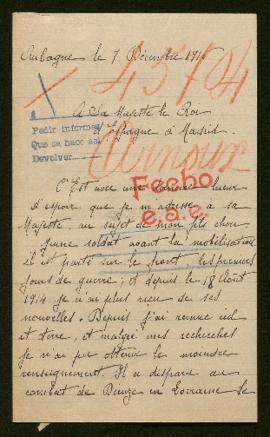 Aubagne le 7 Décembre 1915
43704
A Sa Majesté le Roi
d'Espagne à Madrid.
Pedir informes
Que se hace así
Devolver
Arnoux
C'Est avec une dernière lueur
Fecho
d'espoir que je m'adresse à sa
e.a.e.
Majesté, au sujet de mon fils chou
Jeune soldat avant la mobilisation
il est parti sur le front les premiers
jours de guerre; et depuis le 18 Août
1914 je n'ai plus reçu de ses
nouvelles. Depuis j'ai remué ciel
et terre, et malgré mes recherches
je n'ai pu obtenir le moindre
renseignement. Il a disparu au
combat de Dieuze en Lorraine le